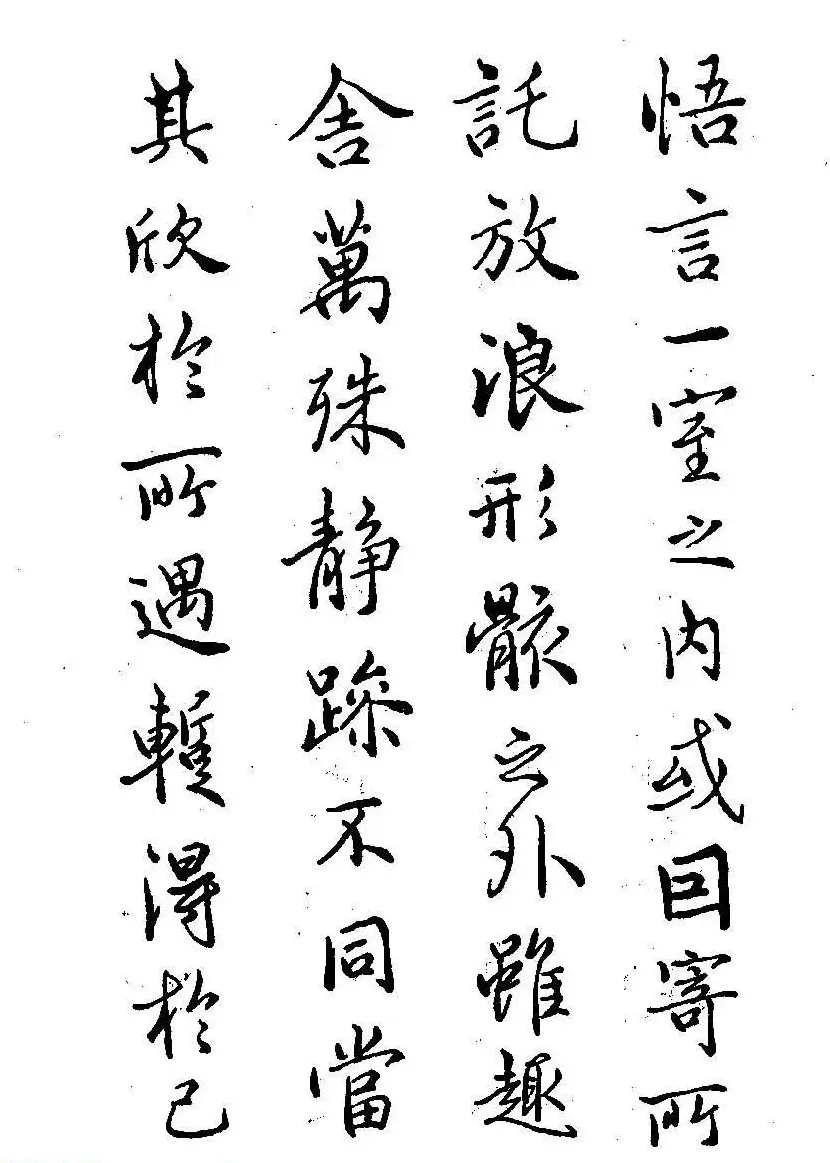 悟言一室之内或因寄所
託放浪形骸之外雖趣
舍萬殊静躁不同當
其欣於所遇暫得於己